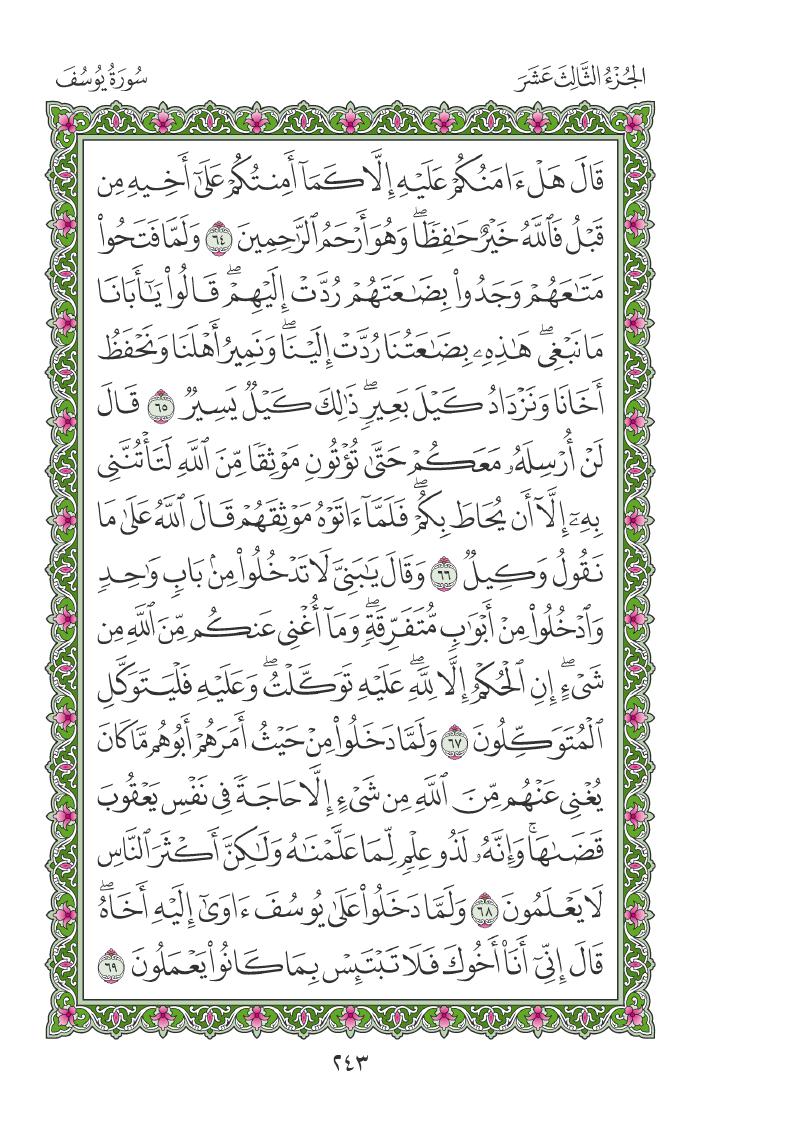 الجُزْءُ الثَّالِثَ عَشَرَ
سُورَةُ يُوسُفَ
قَالَ هَلْ ءَامَنُكُمْ عَلَيْهِ إِلَّا كَمَآ أَمِنتُكُمْ عَلَىٰٓ أَخِيهِ مِن
قَبْلُ فَٱللَّهُ خَيْرٌ حَٰفِظٗاۖ وَهُوَ أَرْحَمُ ٱلرَّٰحِمِينَ ٦٤ وَلَمَّا فَتَحُواْ
مَتَٰعَهُمْ وَجَدُواْ بِضَٰعَتَهُمْ رُدَّتْ إِلَيْهِمْۖ قَالُواْ يَٰٓأَبَانَا
مَا نَبْغِيۖ هَٰذِهِۦ بِضَٰعَتُنَا رُدَّتْ إِلَيْنَاۖ وَنَمِيرُ أَهْلَنَا وَنَحْفَظُ
أَخَانَا وَنَزْدَادُ كَيْلَ بَعِيرٖۖ ذَٰلِكَ كَيْلٞ يَسِيرٞ ٦٥ قَالَ
لَنْ أُرْسِلَهُۥ مَعَكُمْ حَتَّىٰ تُؤْتُونِ مَوْثِقٗا مِّنَ ٱللَّهِ لَتَأْتُنَّنِي
بِهِۦٓ إِلَّآ أَن يُحَاطَ بِكُمْۖ فَلَمَّآ ءَاتَوْهُ مَوْثِقَهُمْ قَالَ ٱللَّهُ عَلَىٰ مَا
نَقُولُ وَكِيلٞ ٦٦ وَقَالَ يَٰبَنِيَّ لَا تَدْخُلُواْ مِنۢ بَابٖ وَٰحِدٖ
وَٱدْخُلُواْ مِنْ أَبْوَٰبٖ مُّتَفَرِّقَةٖۖ وَمَآ أُغْنِي عَنكُم مِّنَ ٱللَّهِ مِن
شَيْءٍۖ إِنِ ٱلْحُكْمُ إِلَّا لِلَّهِۖ عَلَيْهِ تَوَكَّلْتُۖ وَعَلَيْهِ فَلْيَتَوَكَّلِ
ٱلْمُتَوَكِّلُونَ ٦٧ وَلَمَّا دَخَلُواْ مِنْ حَيْثُ أَمَرَهُمْ أَبُوهُم مَّا كَانَ
يُغْنِي عَنْهُم مِّنَ ٱللَّهِ مِن شَيْءٍ إِلَّا حَاجَةٗ فِي نَفْسِ يَعْقُوبَ
قَضَىٰهَاۚ وَإِنَّهُۥ لَذُو عِلْمٖ لِّمَا عَلَّمْنَٰهُ وَلَٰكِنَّ أَكْثَرَ ٱلنَّاسِ
لَا يَعْلَمُونَ ٦٨ وَلَمَّا دَخَلُواْ عَلَىٰ يُوسُفَ ءَاوَىٰٓ إِلَيْهِ أَخَاهُۖ
قَالَ إِنِّيٓ أَنَا۠ أَخُوكَ فَلَا تَبْتَئِسْ بِمَا كَانُواْ يَعْمَلُونَ ٦٩
٢٤٣